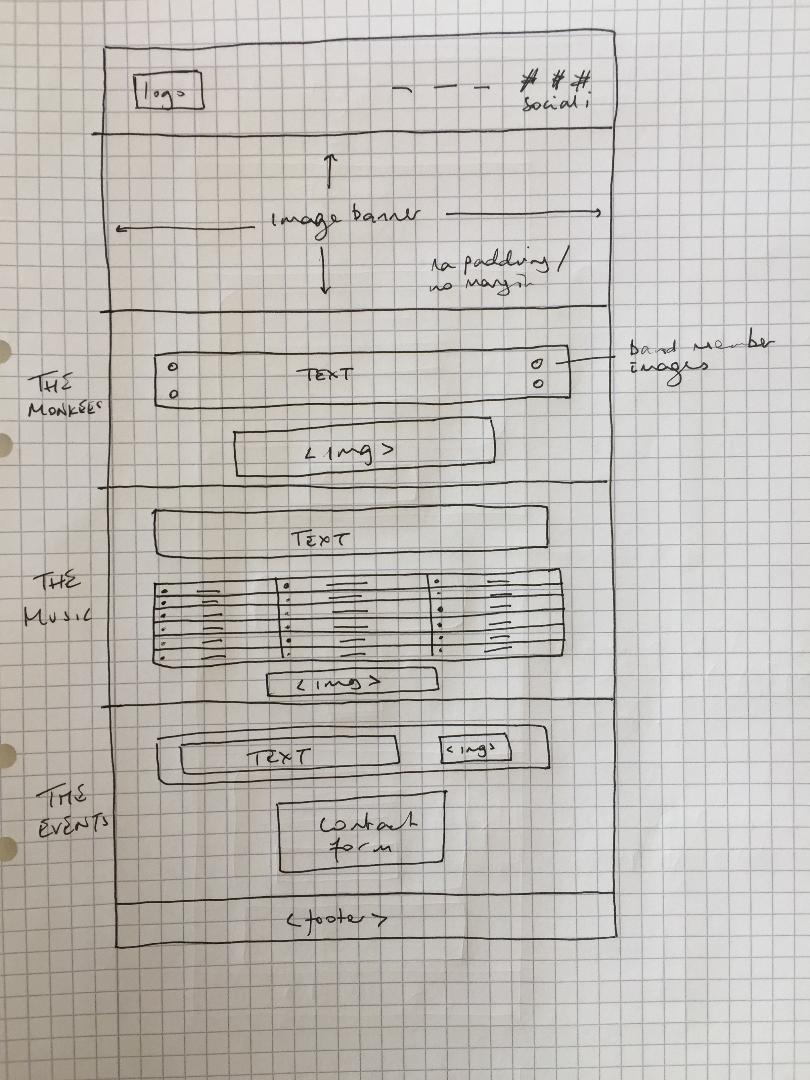 logo
# # #
social;
image banner
no padding/
no margin
THE
MONKEES
TEXT
band member
images
<img>
TEXT
THE
MUSIC
<img>
TEXT
<img>
THE
EVENTS
contact
form
<footer>